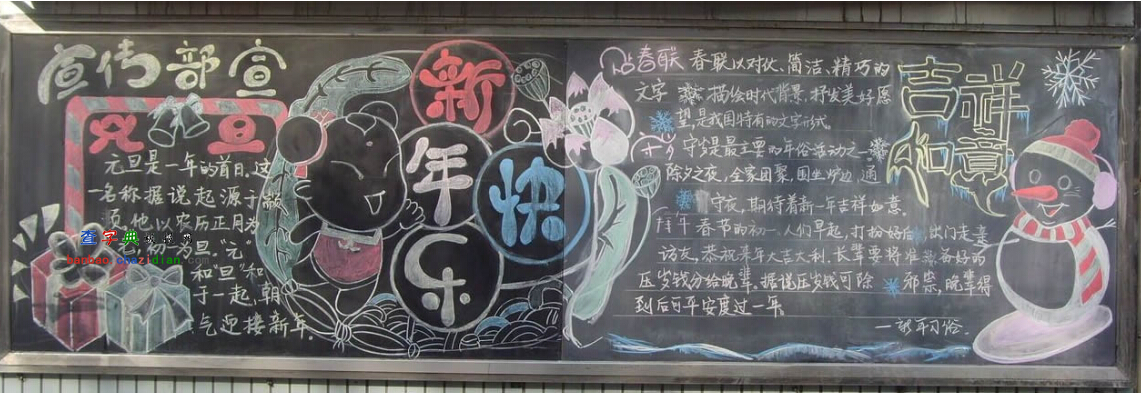 宣传部宣
元旦
元旦是一年的首日.这
一名称据说起源于颛
顼,他以农历正月为
为旦."元"
和"旦"和
于一起,朝
气迎接新年.
查字典
chazidian.com
新
年
快
乐
春联 春联以对仗、简洁、精巧的
文字 描绘时代背景,抒发美好愿
望,是我国特有的文字形式.
守岁是最主要的年俗活动之一
除夕之夜,全家团聚,围坐炉边,通
守夜,期待着新一年吉祥如意.
拜年 春节的初一,人们早起,打扮好后出门走亲
访友,恭祝来年大吉大利,长辈要将准备好的
压岁钱分给晚辈,据说压岁钱可除 邪祟,晚辈得
到后可平安度过一年.
习俗.
吉祥
如意